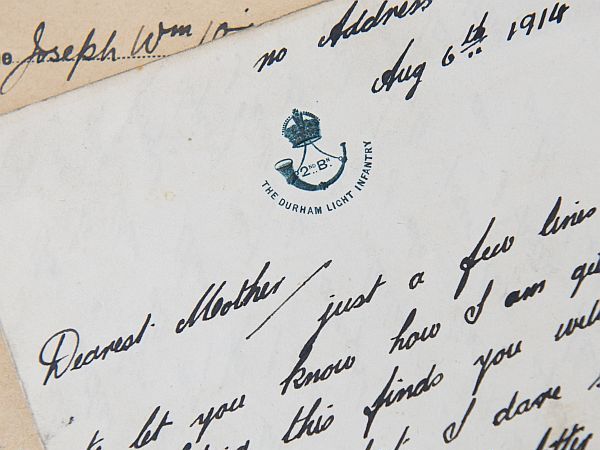 Joseph Wm
no Address
Aug 6th 1914
2ND BN
THE DURHAM LIGHT INFANTRY
Dearest Mother / just a few lines
to let you know how I am
this finds you
I dare